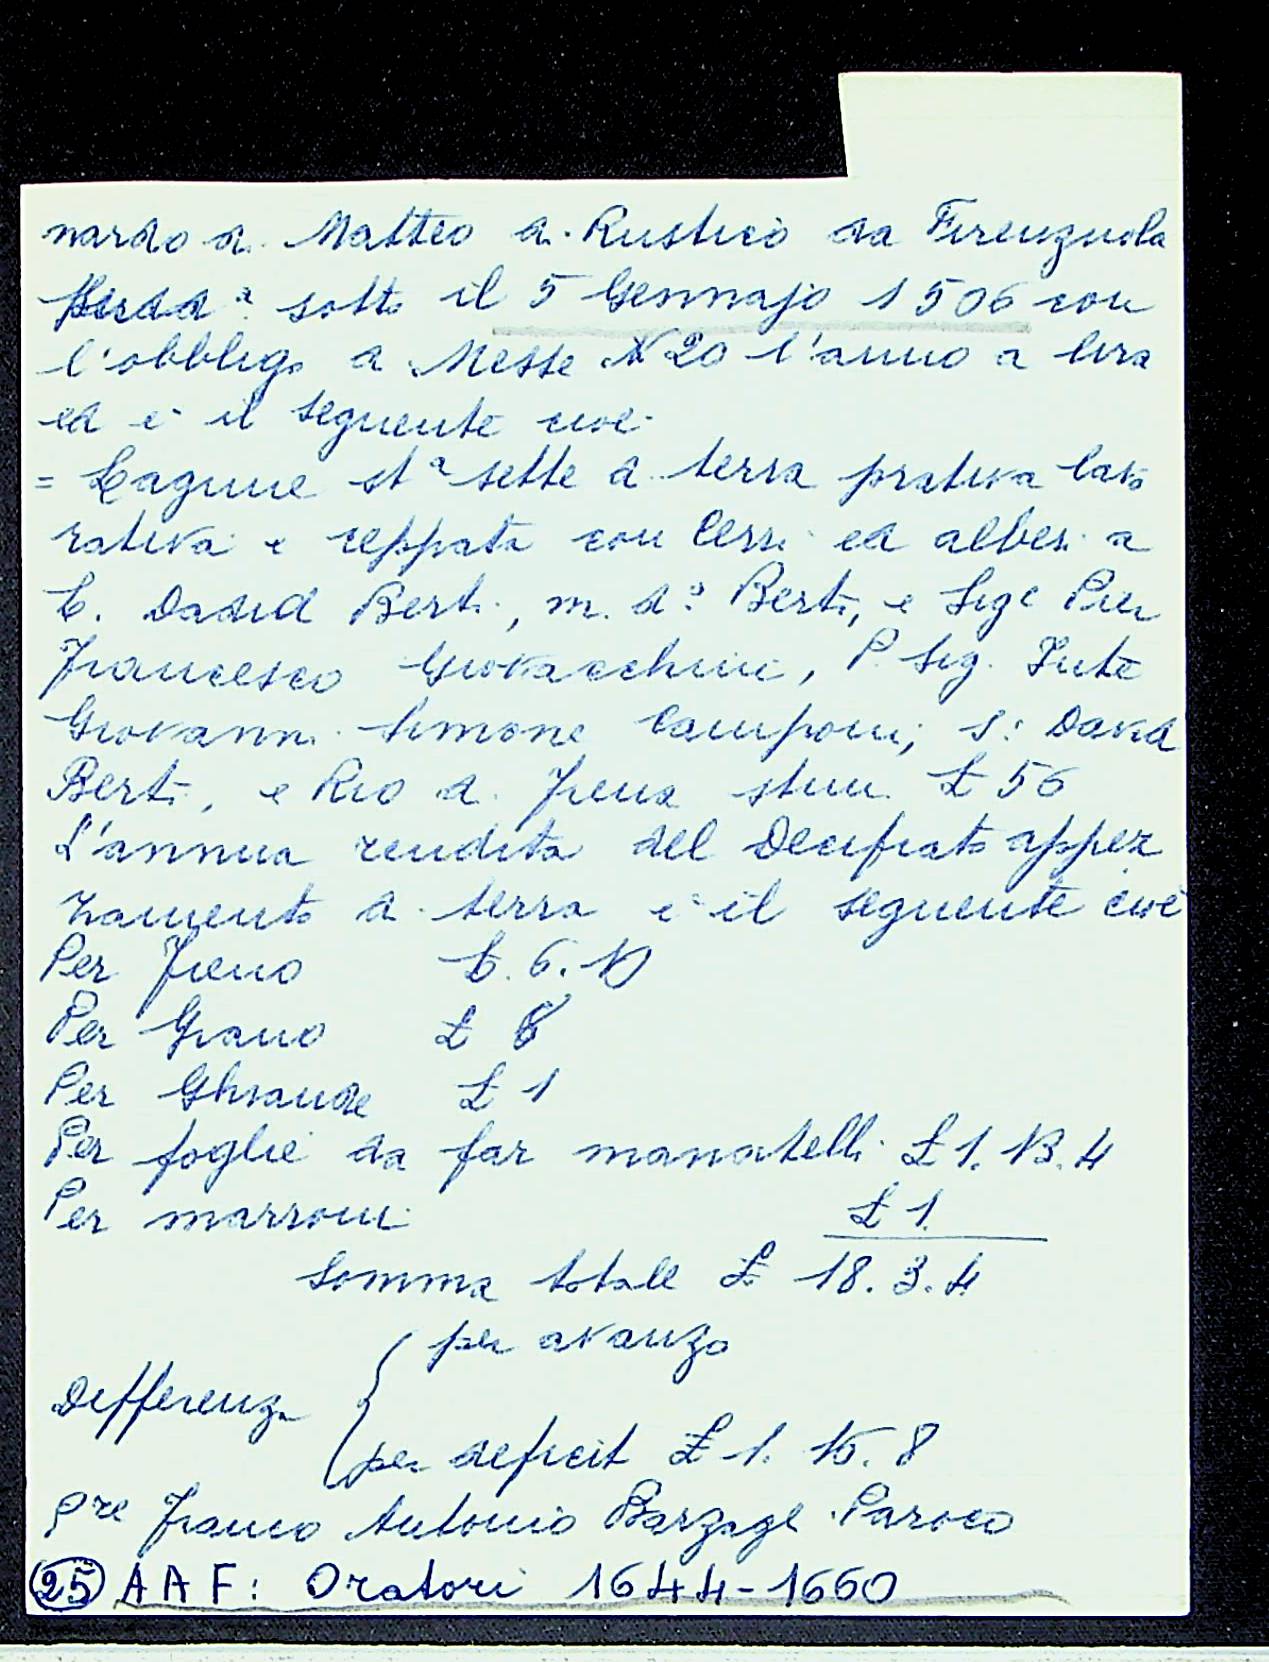 nardo di Matteo di Rustico da Firenzuola
sotto il 5 Gennajo 1506 con
l'obbligo di Messe N 20 l'anno a lira
ed è il seguente cioè
= Lagune st.ª sette di terra prativa lavo
rativa e ceppata con Cerri ed alberi a
C. David Berti, m. d.º Berti, e Sigr Pier
Francesco Giovacchini, P. Sig. Tnte
Giovanni Simone Camponi, s: David
Berti, e Rio di Frena stim. £ 56
L'annua rendita del Decifrato appez
zamento di terra è il seguente cioè
Per Fieno £. 6. 10
Per Grano £ 8
Per Ghiande £ 1
Per foglie da far mannatelli £ 1. 13. 4
Per marroni £ 1.
Somma totale £ 18. 3. 4
per avanzo
Differenza
per deficit £ 1. 16. 8
Pre Franco Antonio Paroco
25 A A F: Oratori 1644-1660